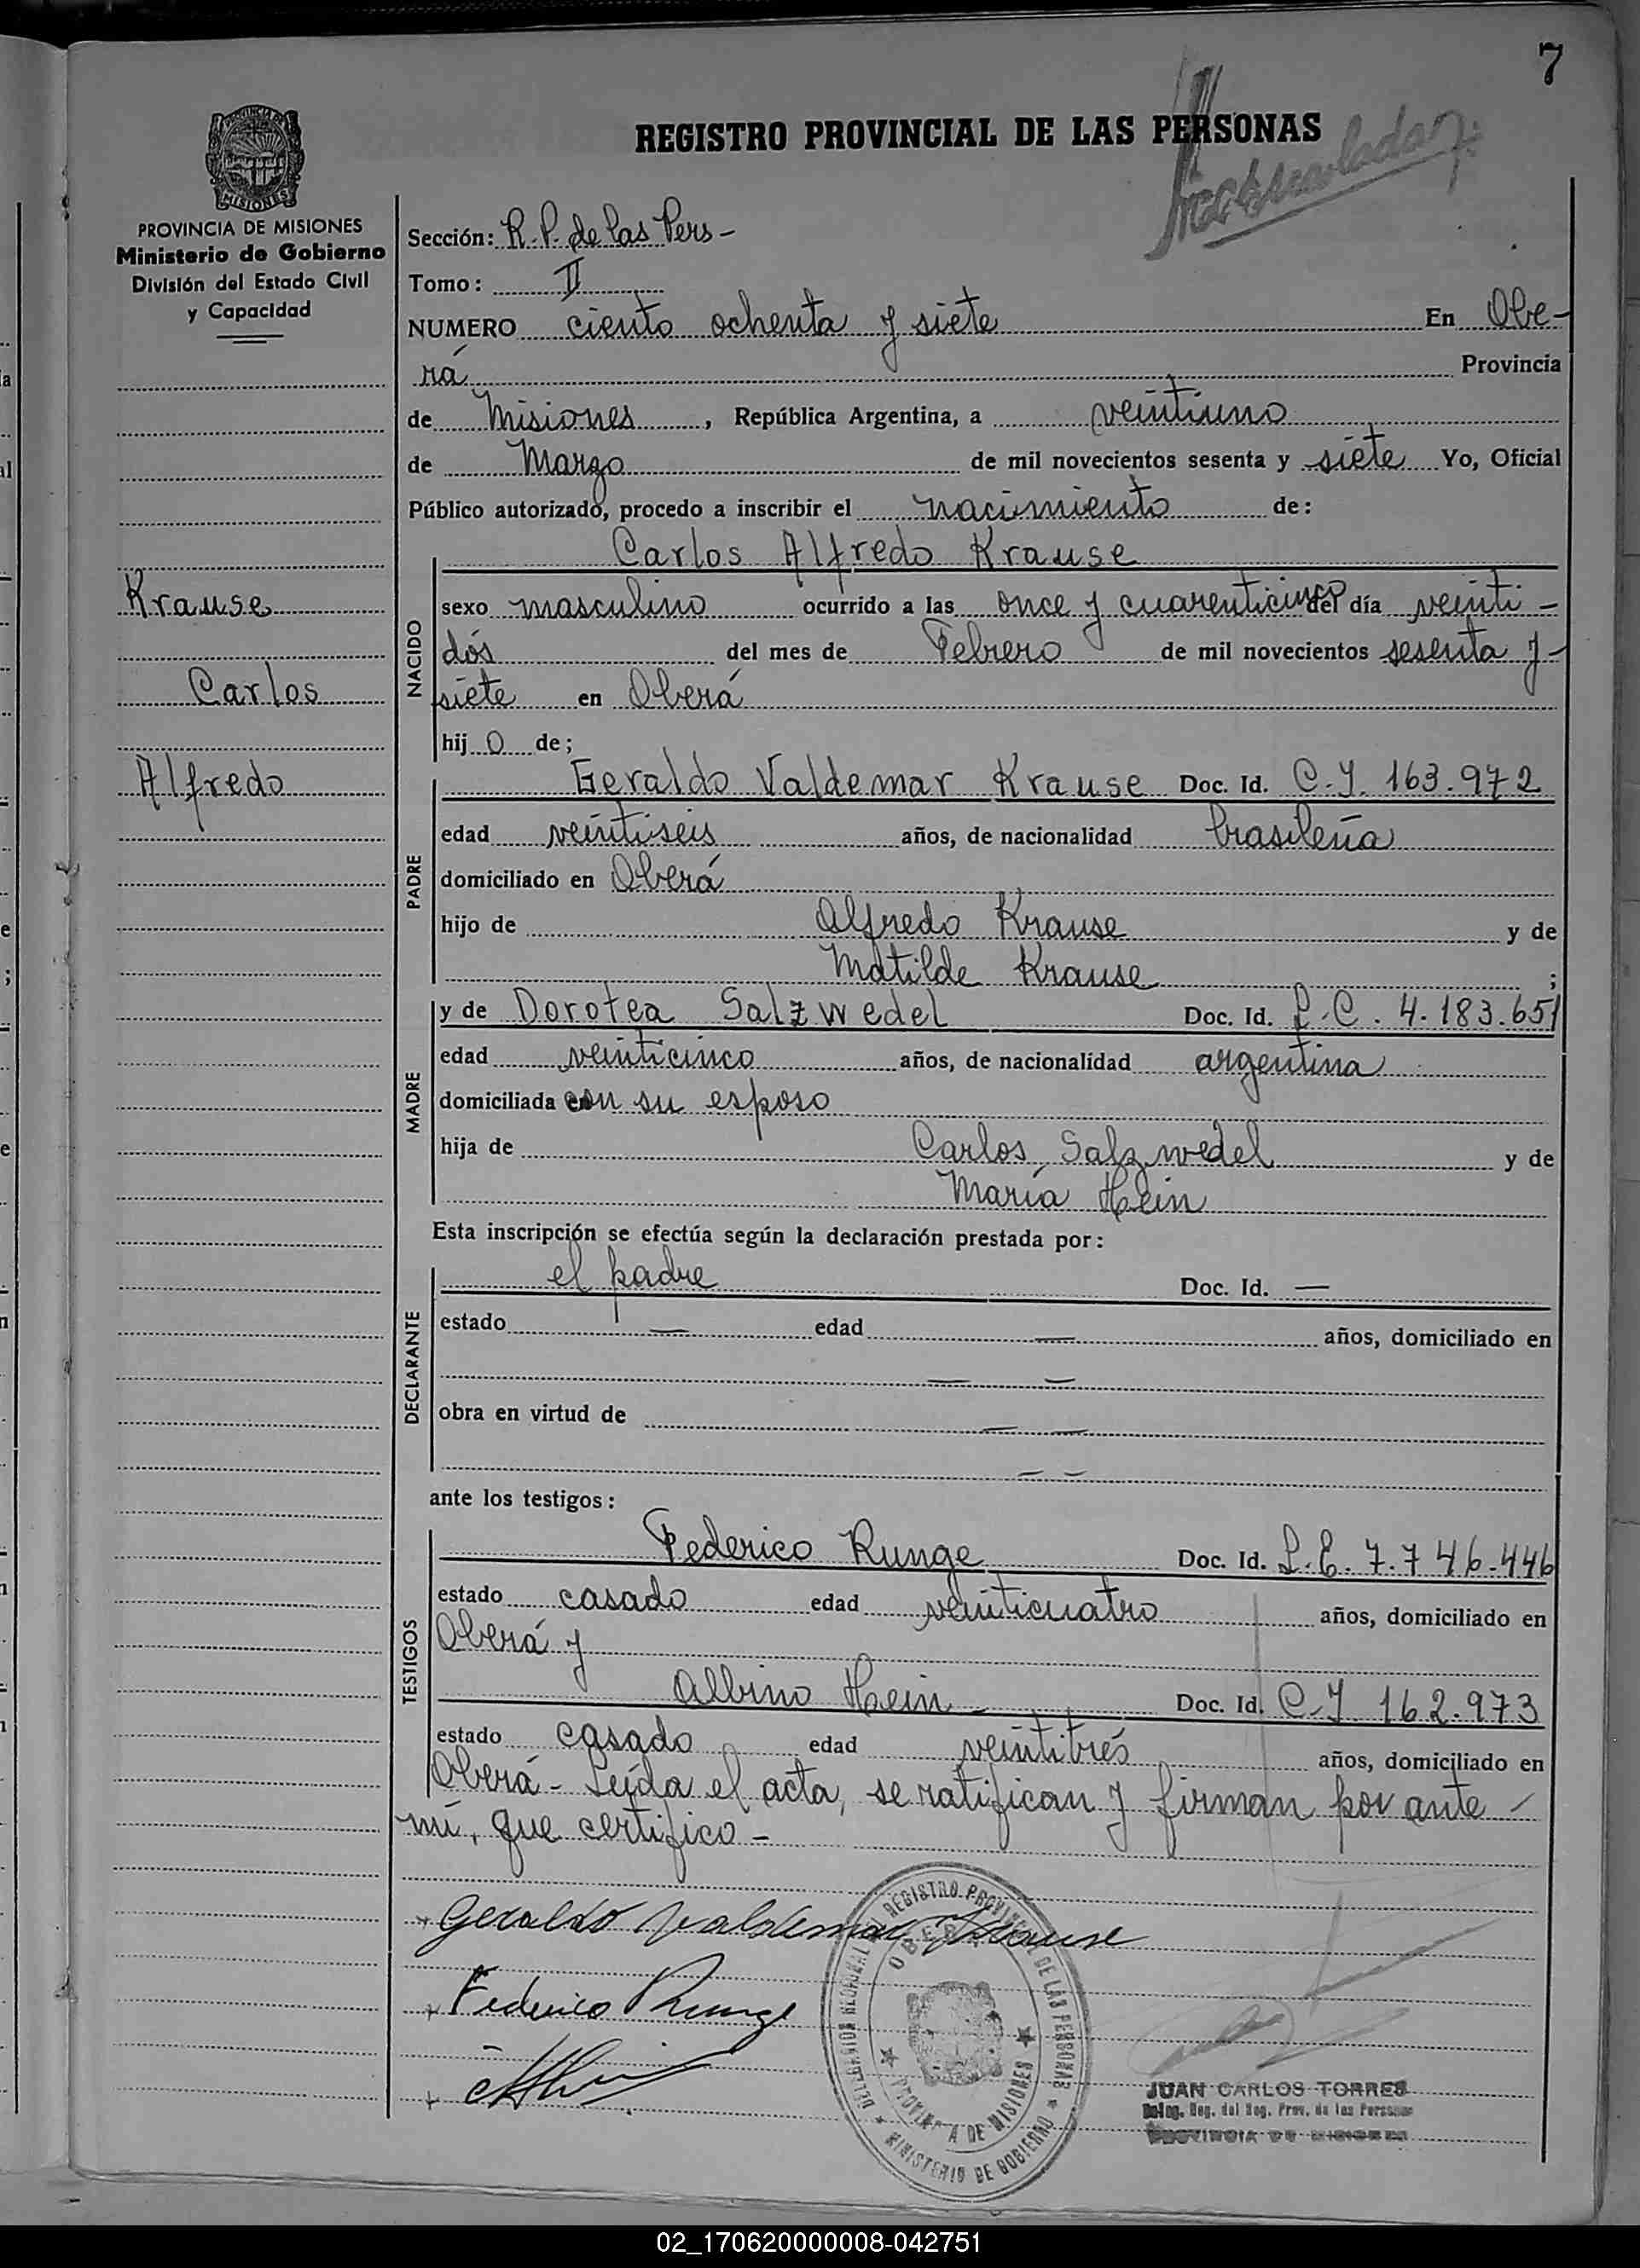 7
REGISTRO PROVINCIAL DE LAS PERSONAS
PROVINCIA DE MISIONES
Ministerio de Gobierno
División del Estado Civil
y Capacidad
Krause
Carlos
Alfredo
Sección: R. P. de las Pers -
Tomo: II
NUMERO ciento ochenta y siete En Obe-
rá Provincia
de Misiones, República Argentina, a veintiuno
de Marzo de mil novecientos sesenta y siete Yo, Oficial
Público autorizado, procedo a inscribir el nacimiento de:
NACIDO
Carlos Alfredo Krause
sexo masculino ocurrido a las once y cuarenticinco del día veinti -
dós del mes de Febrero de mil novecientos sesenta y -
siete en Oberá
hij o de;
PADRE
Geraldo Valdemar Krause Doc. Id. C. I. 163.972
edad veintiseis años, de nacionalidad brasileña
domiciliado en Oberá
hijo de Alfredo Krause y de
Matilde Krause ;
MADRE
y de Dorotea Salzwedel Doc. Id. L. C. 4.183.651
edad veinticinco años, de nacionalidad argentina
domiciliada con su esposo
hija de Carlos Salzwedel y de
María Hein
Esta inscripción se efectúa según la declaración prestada por:
DECLARANTE
el padre Doc. Id. —
estado — edad — años, domiciliado en
— —
obra en virtud de — —
— —
ante los testigos:
TESTIGOS
Federico Runge Doc. Id. L. E. 7.746.446
estado casado edad veinticuatro años, domiciliado en
Oberá y
Albino Hein - Doc. Id. C. I 162.973
estado casado edad veintitrés años, domiciliado en
Oberá - Leída el acta, se ratifican y firman por ante -
mí, que certifico -
Geraldo Valdemar Krause
Federico Runge
DELEGACION REGIONAL DEL REGISTRO PROVINCIAL DE LAS PERSONAS
OBERA
PROVINCIA DE MISIONES
MINISTERIO DE GOBIERNO
JUAN CARLOS TORRES
Deleg. Reg. del Reg. Prov. de las Personas
PROVINCIA DE MISIONES
02_170620000008-042751